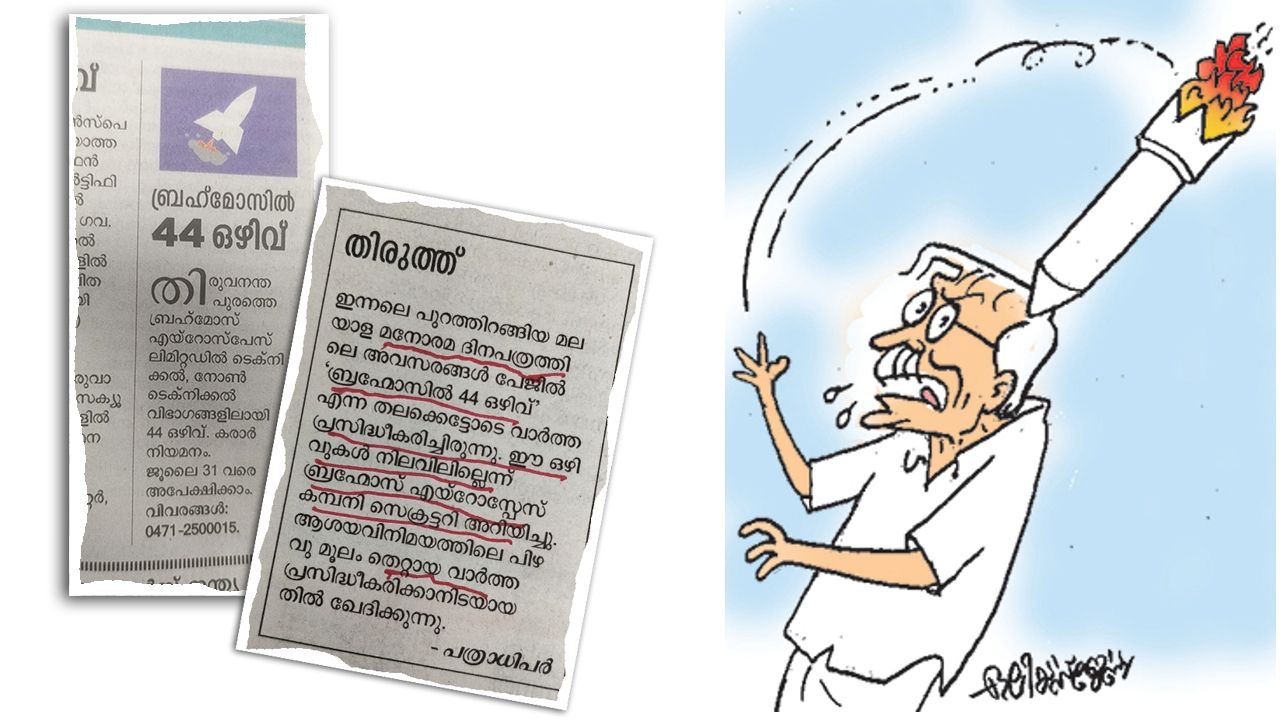 വ്
ൻസ്പെ
യാത്ത
ഫൻ
ർട്ടിഫി
ൽ
ഗവ.
ൽ
ളിൽ
വിത
വി
രുവാ
സക്യൂ
ളിൽ
മന
റ്റർ,
ബ്രഹ്മോസിൽ
44 ഒഴിവ്
തിരുവനന്ത
പുരത്തെ
ബ്രഹ്മോസ്
എയ്റോസ്പേസ്
ലിമിറ്റഡിൽ ടെക്നി
ക്കൽ, നോൺ
ടെക്നിക്കൽ
വിഭാഗങ്ങളിലായി
44 ഒഴിവ്. കരാർ
നിയമനം.
ജൂലൈ 31 വരെ
അപേക്ഷിക്കാം.
വിവരങ്ങൾ:
0471-2500015.
തിരുത്ത്
ഇന്നലെ പുറത്തിറങ്ങിയ മല
യാള മനോരമ ദിനപത്രത്തി
ലെ അവസരങ്ങൾ പേജിൽ
‘ബ്രഹ്മോസിൽ 44 ഒഴിവ്’
എന്ന തലക്കെട്ടോടെ വാർത്ത
പ്രസിദ്ധീകരിച്ചിരുന്നു. ഈ ഒഴി
വുകൾ നിലവിലില്ലെന്ന്
ബ്രഹ്മോസ് എയ്റോസ്പേസ്
കമ്പനി സെക്രട്ടറി അറിയിച്ചു.
ആശയവിനിമയത്തിലെ പിഴ
വു മൂലം തെറ്റായ വാർത്ത
പ്രസിദ്ധീകരിക്കാനിടയായ
തിൽ ഖേദിക്കുന്നു.
- പത്രാധിപർ